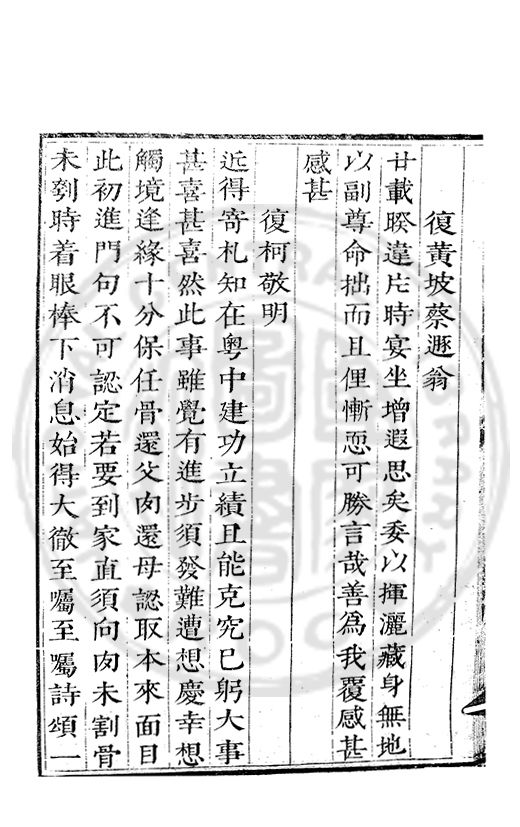 復黃坡蔡遯翁
廿載睽違片時宴坐增遐思矣委以揮灑藏身無地
以副尊命拙而且俚慚恧可勝言哉善為我覆感甚
感甚
復柯敬明
近得寄札知在粵中建功立績且能克究已躬大事
甚喜甚喜然此事雖覺有進步須發難遭想慶幸想
觸境逢緣十分保任骨還父肉還母認取本來面目
此初進門句不可認定若要到家直須向肉未割骨
未剔時着眼棒下消息始得大徹至囑至囑詩頌一